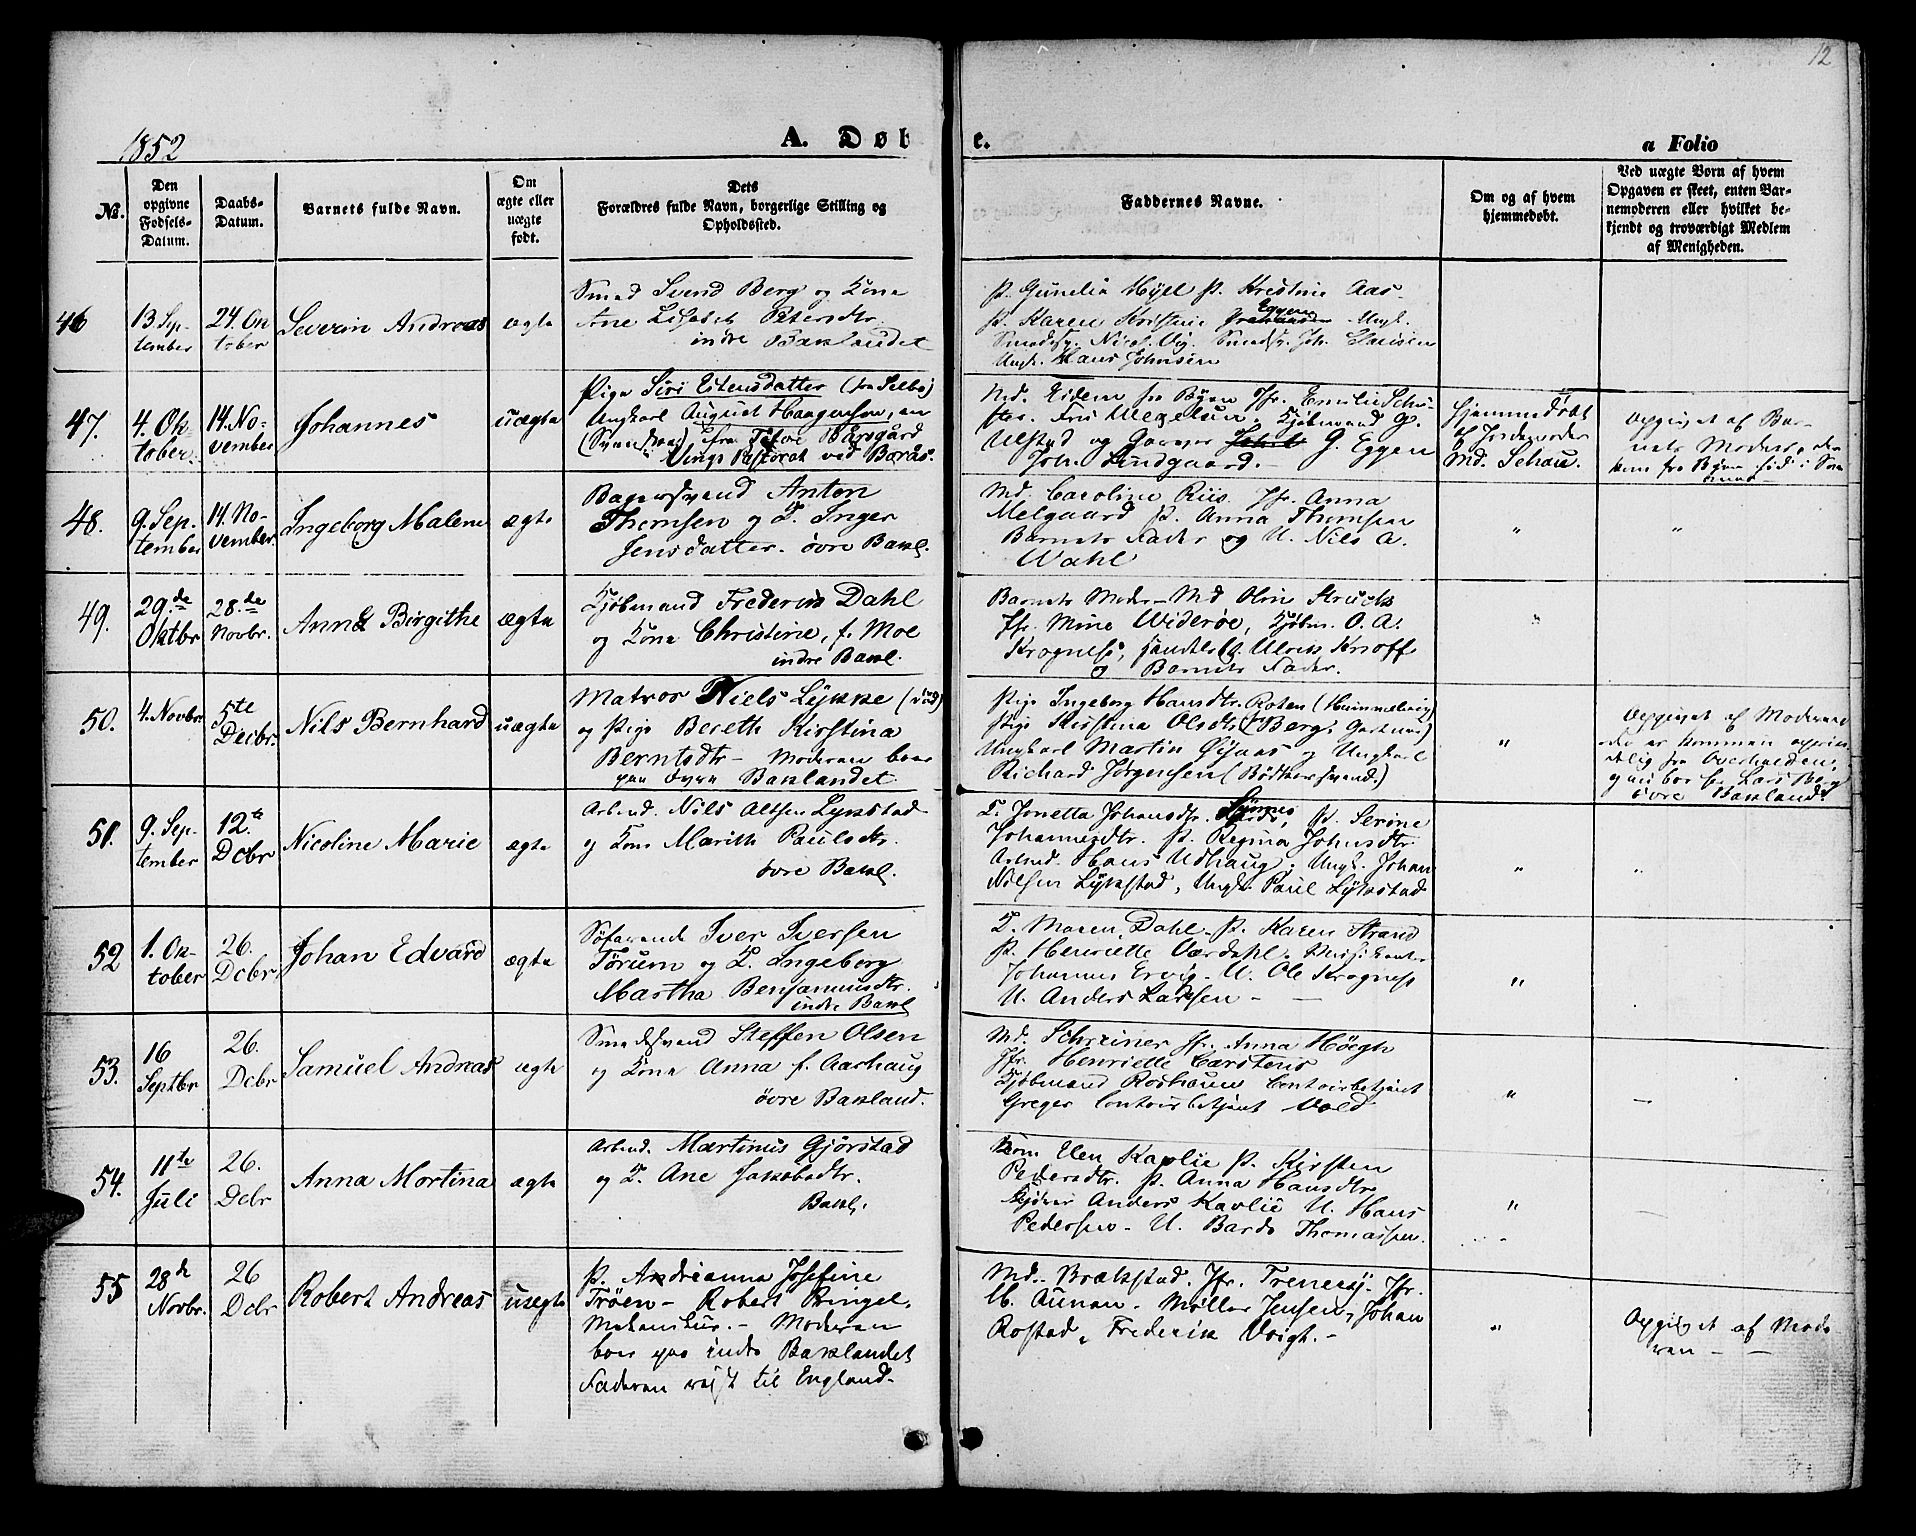 12
1852
A. Døb
te.
a Folio
No.
Den opgivne Fødsels-Datum.
Daabs-Datum.
Barnets fulde Navn.
Om ægte eller uægte født.
Dets Forældres fulde Navn, borgerlige Stilling og Opholdssted.
Faddernes Navne.
Om og af hvem hjemmedøbt.
Ved uægte Børn af hvem Opgaven er skeet, enten Barnemoderen eller hvilket bekjendt og troværdigt Medlem af Menigheden.
46
13 Sep-
tember
24. Ok
tober
Severin Andreas
ægte
Smed Svend Berg og Kone
Ane Lisabet Petersdtr.
indre Baklandet
P. Gunelia Hyel P. Kristine Aas
P. Karen Kristine Eggen Ungk.
Smedsv. Nicol. Vig. Smedsv. Joh. Clausen
Ungk. Hans Johnsen
47.
4. Ok-
tober.
14. No-
vember
Johannes
uægte
Pige Siri Estensdatter (fra Selbo)
Ungkarl August Haagensen, en
(Svensk) fra Tofve Bårsgård
Vings Pastorat ved Borås.
Md. Eidem fra Byen Jfr. Emilie Schu-
Frü Wegelsen Kjøbmand G.
Ulstad og Garver G. Eggen
Joh. Lindgaard.
Hjemmedöbt
af Jordemoder
Md. Schau.
Opgivet af Bar-
nets Moder,
48.
9. Sep-
tember
14. No-
vember.
Ingeborg Malene
ægte
Bagersvend Anton
Thomsen og K. Inger
Jensdatter. övre Bakl.
Md. Caroline Riis. Jfr. Anna
Melgaard P. Anna Thomsen
Barnets Fader og U. Nils A.
Wahl
"
"
49.
29.de
Oktbr
28.de
Novbr.
Anne Birgithe
ægte
Kjöbmand Frederik Dahl
og Kone Christine, f. Moe
indre Bakl.
Barnets Moder - Md Olin Struck
Jfr. Mine Widerøe, Kjöbm. O. A.
Krogness, Ulrik Knoff
og Barnets Fader.
"
50.
4. Novbr
5te
Decbr.
Nils Bernhard
uægte
Matros Niels Lykke
og Pige Bereth Kirstina
Berntsdtr - Moderen boer
paa övre Baklandet.
Pige Ingeborg Hansdtr. Roten
Pige Kirstina Olsdtr (Berg, Gartner)
Ungkarl Martin Öysaas og Ungkarl
Richard Jørgensen (Bödkersvend.)
"
Opgivet af Moderen
51.
9. Sep-
tember
12.te
Dcbr
Nicoline Marie
ægte
Arbmd. Nils Altsen Lykstad
og Kone Marith Paulsdtr.
övre Bakl.
K. Jonetta Johansdtr. P. Serine
Johannesdtr. P. Regina Johnsdtr.
Arbmd. Hans Udhaug, Ungk. Johan
Nilsen Lykstad, Ungk. Paul Lykstad
"
"
52
1. Ok-
tober
26.
Dcbr.
Johan Edvard
ægte
Söfarende Iver Iversen
Törum og K. Ingeborg
Martha Benjaminsdtr.
indre Bakl
K. Maren Dahl. P. Karen Strand
P. Henriette Værdahl, Musikanter
Johannes Ervig. U. Ole Krogness
U. Anders Larsen -
"
53.
16
Septbr
26.
Dcbr
Samuel Andreas
ægte
Smedsvend Steffen Olsen
og Kone Anna f. Aarhaug
övre Bakland.
Md. Schreiner Jfr. Anna Höegh
Jfr. Henriette Carstens
Kjöbmand Roshauw Contoirbetjent
Greger Contoirbetjent Vold
"
54.
11te
Juli
26.
Dcbr
Anna Mortina
ægte
Arbmd. Martinus Gjörstad
og K. Ane Jakobsdtr.
Bakl.
Elen Kavlie P. Kirsten
Pedersdtr. P. Anna Hansdtr
Anders Kavlie U. Hans
Pedersen - U. Bardo Thomassen.
"
55
28de
Novbr.
26
Dcbr
Robert Andreas
uægte
P. Andrianna Josefine
Tröen - Robert Pringel,
Mekanikus. - Moderen
boer paa indre Baklandet
Faderen rejst til England.
Md. Brækstad. Jfr. Trenery. Jfr.
M. Aunan. Möller Jensen, Johan
Rostad, Frederik Voigt. -
"
Opgivet af Mode
ren -